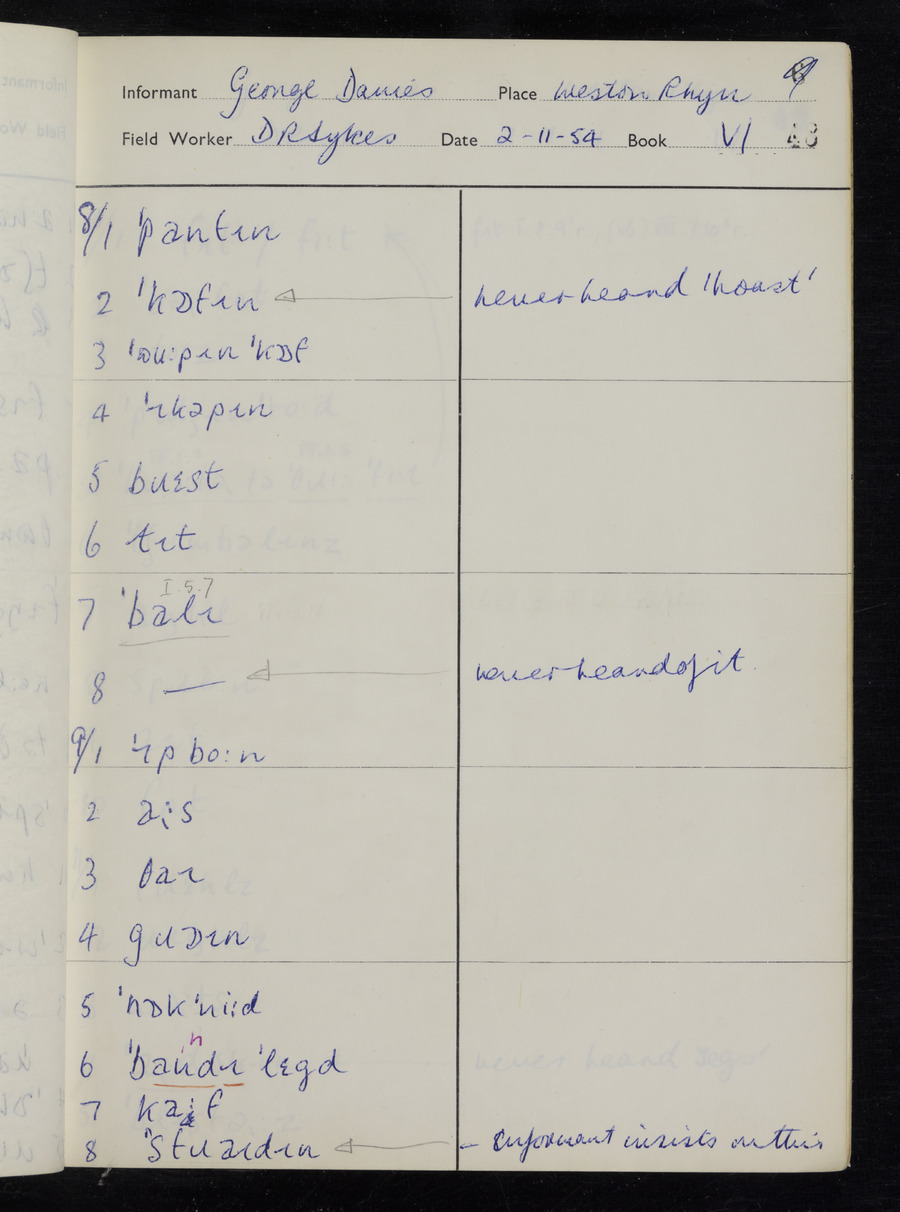 Informant George Davies Place Weston Rhyn
Field Worker D R Sykes Date 2-11-54 Book VI 43
8/1 'pantɪn
2 'kɒfɪn never heard 'hoast'
3 'ɒu:pɪn 'kɒf
4
5 bɹɛst
6 tɪt
I.5.7
7 'bɛlɪ
8 — never heard of it
9/1 'ɪp bo:n
2
3 θaɪ
4 gɹɒɪn
5 'nɒk 'ni:d
n
6 'bandɪ 'lɛgd
7
8 - Informant insists on this